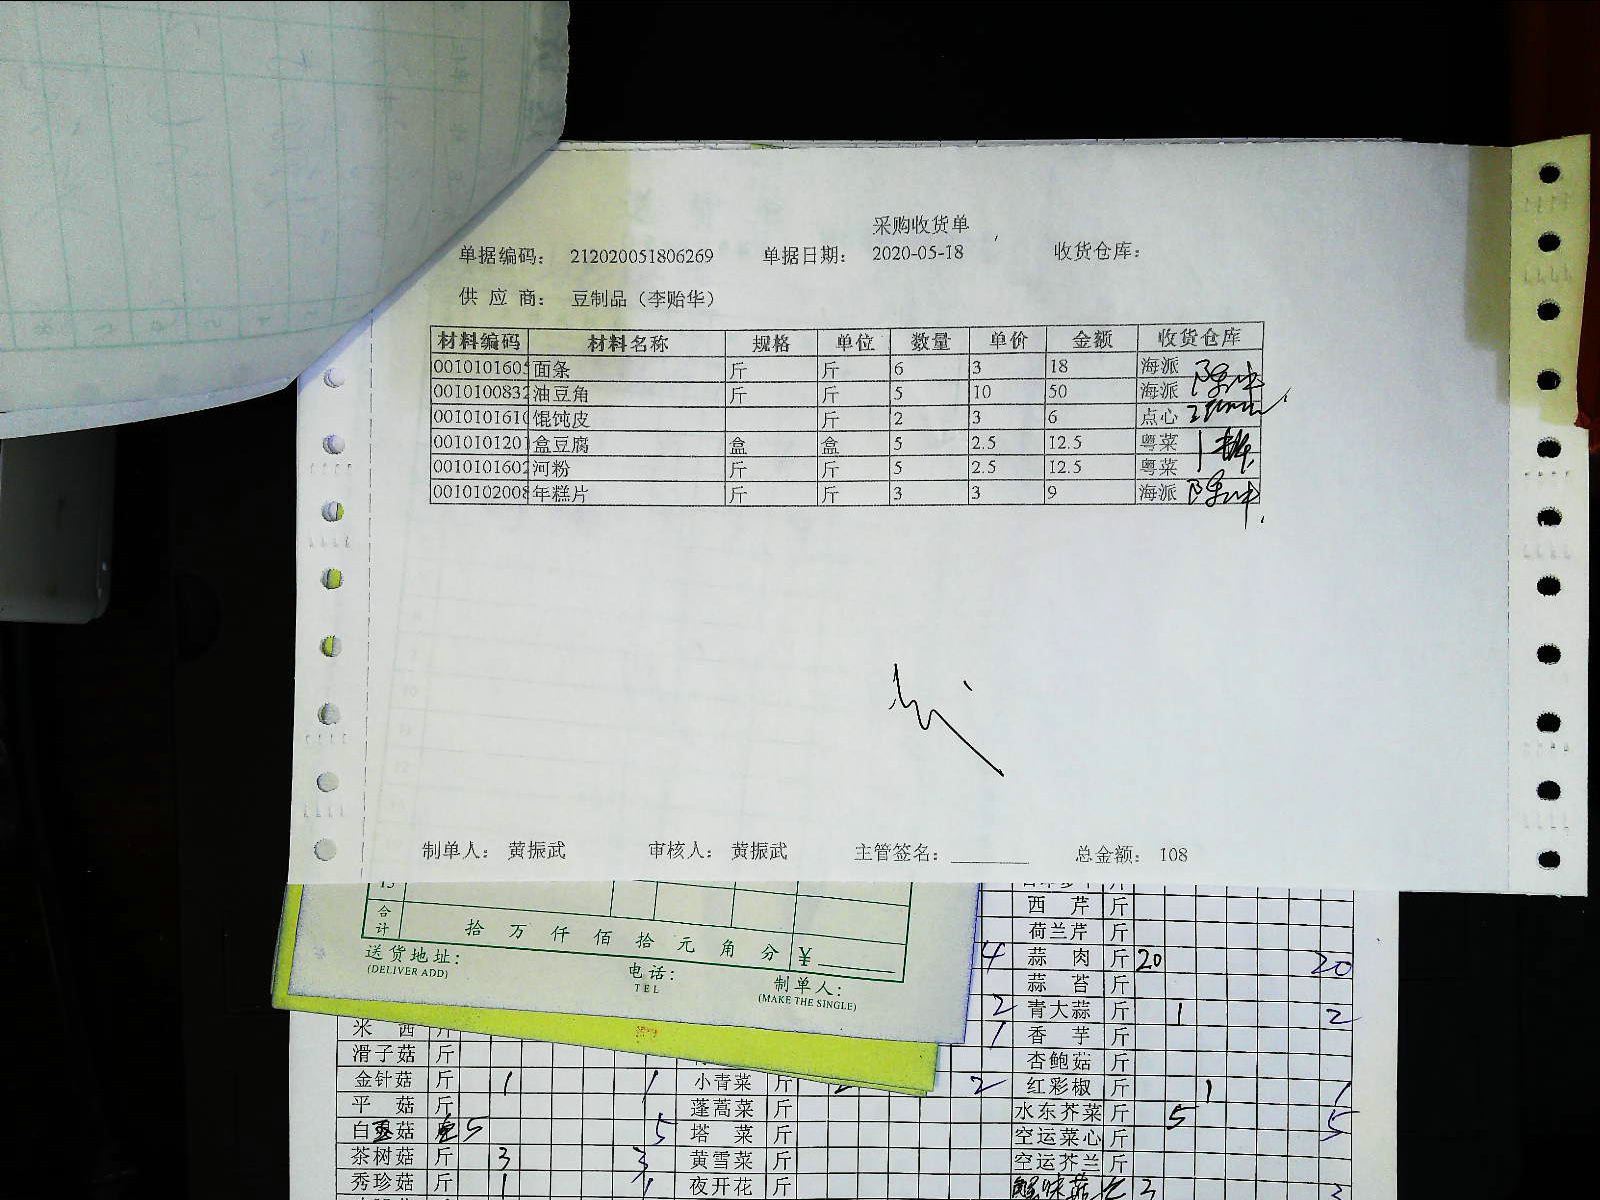 采购收货单
单据编码： 212020051806269 单据日期： 2020-05-18 收货仓库：
供 应 商： 豆制品（李贻华）
材料编码 材料名称 规格 单位 数量 单价 金额 收货仓库
001010160 面条 斤 斤 6 3 18 海派
001010083 油豆角 斤 斤 5 10 50 海派
001010161 馄饨皮 斤 2 3 6 点心
001010120 盒豆腐 盒 盒 5 2.5 12.5 粤菜
001010160 河粉 斤 斤 5 2.5 12.5 粤菜
001010200 年糕片 斤 斤 3 3 9 海派
制单人： 黄振武 审核人： 黄振武 主管签名： 总金额： 108
合计 拾 万 仟 佰 拾 元 角 分 ¥
送货地址：
(DELIVER ADD)
电话：
TEL
制单人：
(MAKE THE SINGLE)
西 芹 斤
荷兰芹 斤
4 蒜 肉 斤 20 20
蒜 苔 斤
2 青大蒜 斤 1 2
1 香 芋 斤
滑子菇 斤 杏鲍菇 斤
金针菇 斤 1 1 小青菜 斤 2 2 红彩椒 斤 1 1
平 菇 斤 蓬蒿菜 斤 水东芥菜 斤 5 5
白 菇 5 5 塔 菜 斤 空运菜心 斤
茶树菇 斤 3 3 黄雪菜 斤 空运芥兰 斤
秀珍菇 斤 1 1 夜开花 斤 3 3